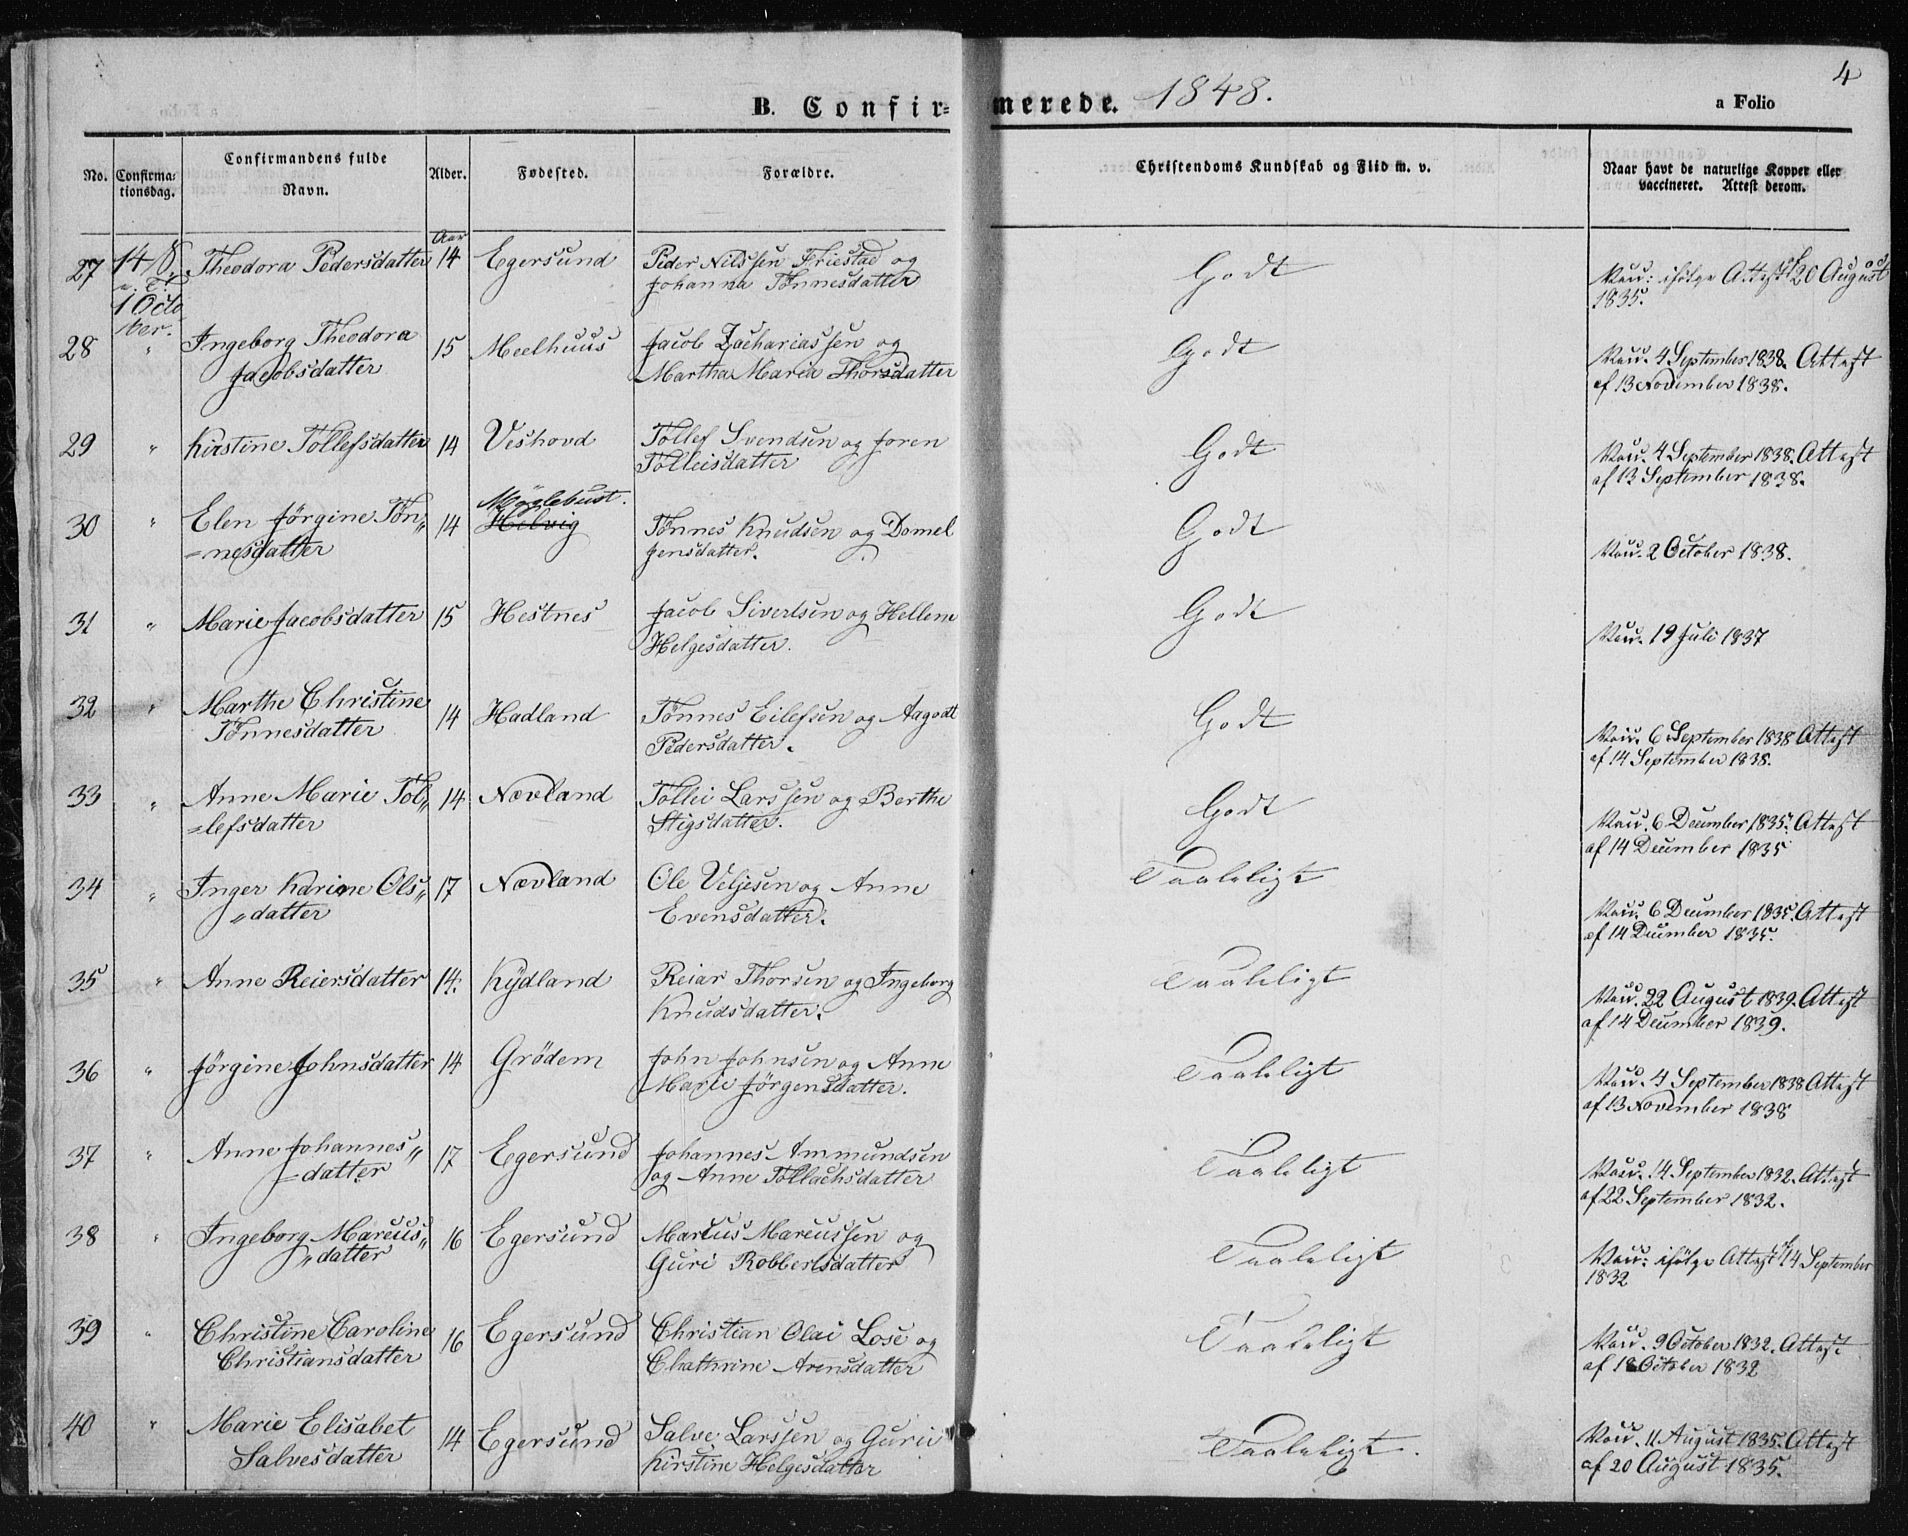 4
B. Confirmerede. 1848.
a Folio
No. Confirmationsdag. Confirmandens fulde Navn. Alder. Fødested. Forældre. Christendoms Kundskab og Flid m. v. Naar havt de naturlige Kopper eller vaccineret. Attest derom.
Aar
27 14/8 Theodora Pedersdatter 14 Egersund Peder Nilssen Friestad og Godt Vacc: ifølge Attest af 20 August
1 Octo Johanna Tønnesdatter 1835.
ber.
28 " Ingeborg Theodora 15 Meelhuus Jacob Zachariassen og Godt Vacc. 4 September 1838. Attest
Jacobsdatter Martha Maria Thorsdatter af 13 November 1838.
29 " Kirstine Tollefsdatter 14 Veshovd Tollef Svendsen og Joren Godt Vacc. 4 September 1838. Attest
Tolleisdatter af 13 September 1838.
Møglebust.
30 " Elen Jørgine Tøn„ 14 Helvig Tønnes Knudsen og Domel Godt Vacc. 2 October 1838.
=nesdatter Jensdatter.
31 " Marie Jacobsdatter 15 Hestnes Jacob Sivertsen og Hellene Godt Vacc. 19 Juli 1837
Helgesdatter.
32 " Marthe Christine 14 Hadland Tønnes Eilefsen og Aagodt Godt Vacc. 6 September 1838 Attest
Tønnesdatter Pedersdatter. af 14 September 1838.
33 " Anne Marie Tol„ 14 Nævland Tollei Larssen og Berthe Godt Vacc. 6 December 1835. Attest
=lefsdatter Stigsdatter. af 14 December 1835
34 " Inger Karine Ols„ 17 Nævland Ole Veljesen og Anne Taaleligt Vacc. 6 December 1835. Attest
„datter Evensdatter. af 14 December 1835.
35 " Anne Reiersdatter 14. Kydland Reiar Thorsen og Ingeborg Taaleligt Vacc. 22 August 1839. Attest
Knudsdatter. af 14 December 1839.
36 " Jørgine Johnsdatter 14 Grödem John Johnsen og Anne Taaleligt Vacc. 4 September 1838 Attest
Marie Jørgensdatter. af 13 November 1838
37 " Anne Johannes„ 17 Egersund Johannes Ammundsen Taaleligt Vacc. 14 September 1832. Attest
=datter og Anne Tollachsdatter af 22 September 1832.
38 " Ingeborg Marcus„ 16 Egersund Marcus Marcussen og Taaleligt Vacc: ifølge Attest af 14 September
„datter Guri Robbertsdatter 1832
39 " Christine Caroline 16 Egersund Christian Olai Lose og Taaleligt Vacc. 9 October 1832. Attest
Christiansdatter Chathrine Arensdatter af 18 October 1832
40 " Marie Elisabet 14 Egersund Salve Larssen og Guri Taaleligt. Vacc. 11 August 1835. Attest
Salvesdatter Kirstine Helgesdatter af 20 August 1835.